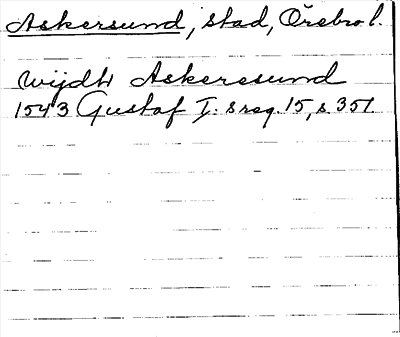 Askersund, stad, Örebro l.
wijdh Askeresund
1543 Gustaf I: s reg. 15, s. 351.